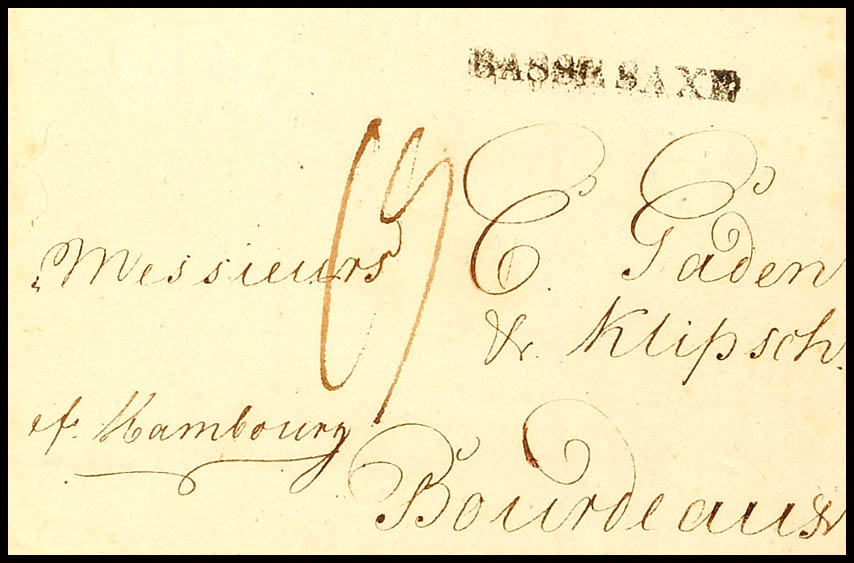 BASSE SAXE
19
Messieurs C. Gaden
& Klipsch.
Hambourg
Bourdeaux